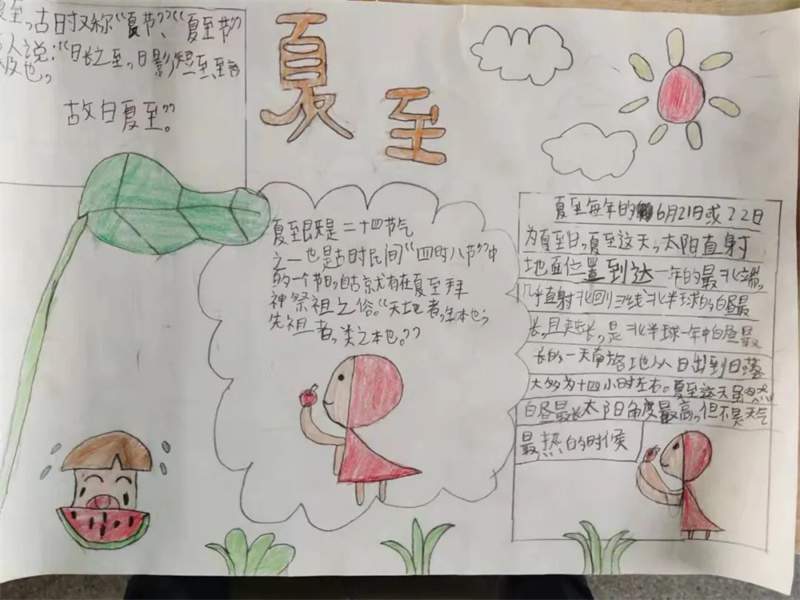 夏至,古时又称“夏节”、“夏至节”
人说:“日长之至,日影短至,至
故曰夏至。”
夏至
夏至既是二十四节气
之一也是古时民间“四时八节”中
的一个节日,自古就有在夏至拜
神祭祖之俗。“天地者,生之本也;
先祖者,类之本也。”
夏至每年的6月21日或22日
为夏至日,夏至这天,太阳直射
地面位置到达一年的最北端,
几乎直射北回归线北半球的白昼最
长,且越长,是北半球一年中白昼最
长的一天南各地从日出到日落
大多为十四小时左右。夏至这天虽然
白昼最长太阳角度最高,但不是天气
最热的时候